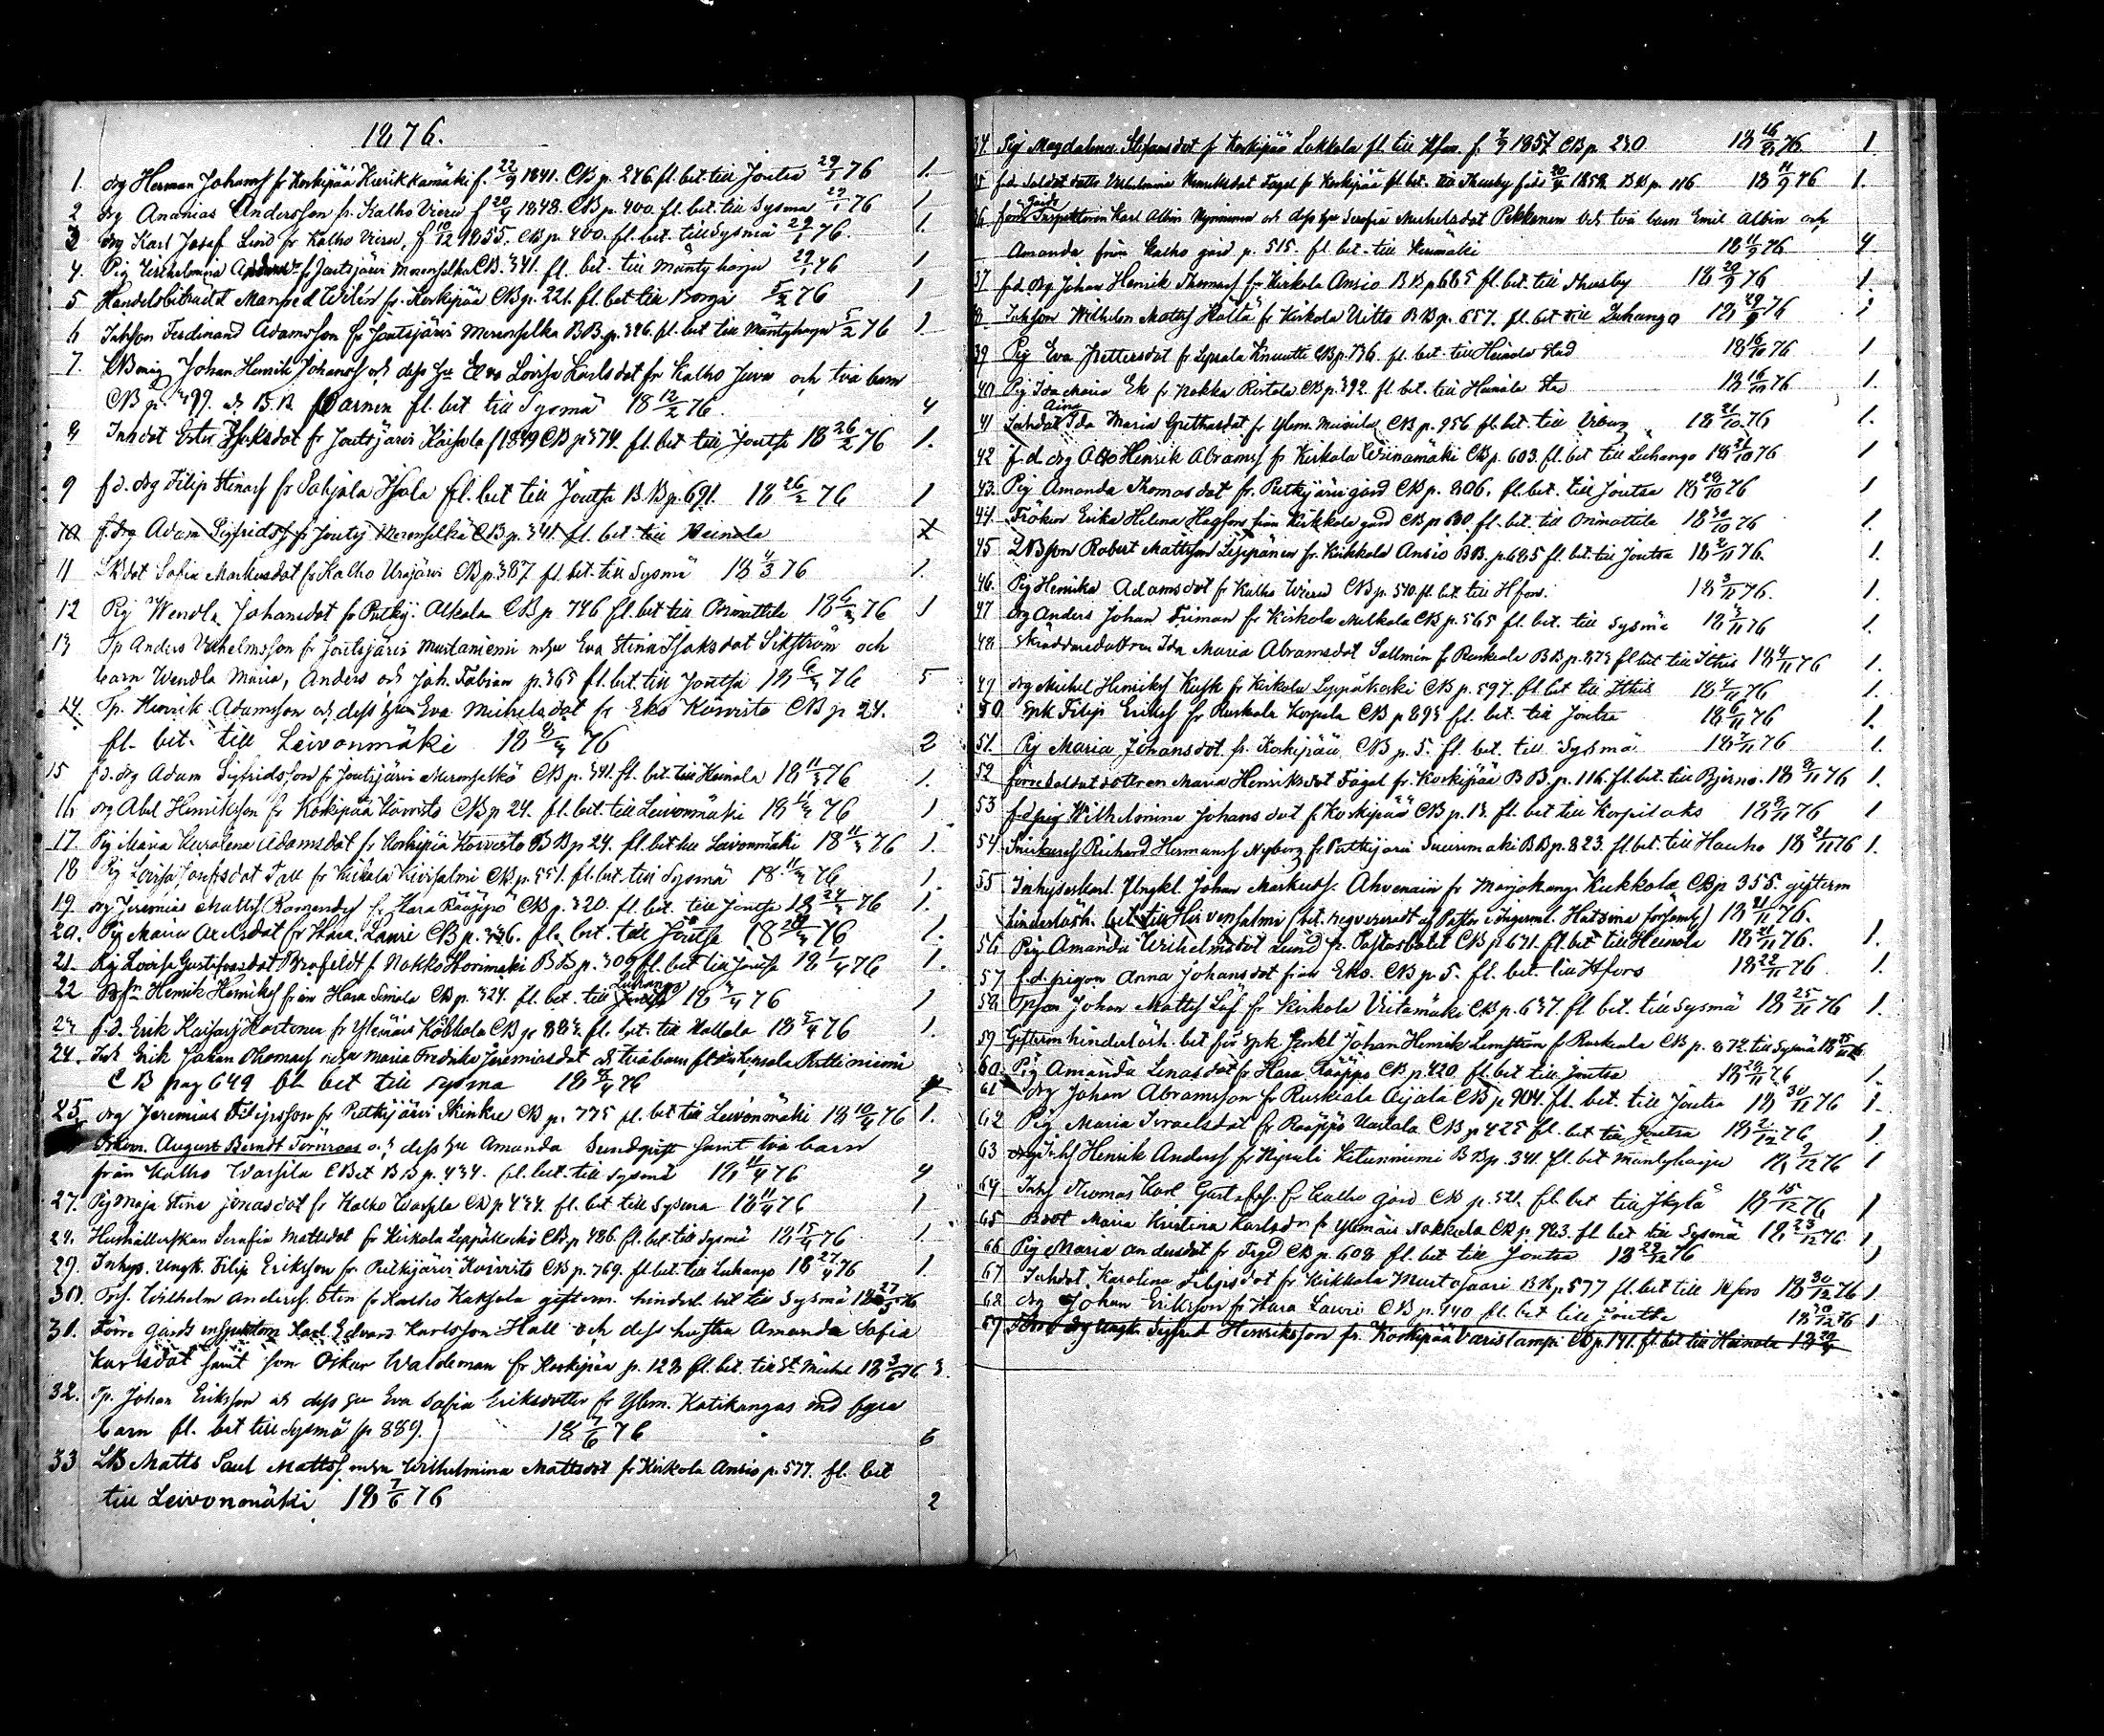 1876.
1. drg Herman Johanss fr Koskipää Kurikkamäki f. 22/9 1841. CB p. 276. fl. bet. till Joutsa 29/1 76 1.
2 drg Ananias Andersson fr. Kalho Vieru f 20/4 1848. CB p. 400. fl. bet. till Sysmä 29/1 76 1.
3 drg Karl Josef Lind fr Kalho Vieru, f 10/12 1855. CB p. 400. fl. bet. till Sysmä 29/1 76. 1
4. Pig Wilhelmina fr Joutsjärvi Merenselkä CB. 341. fl. bet. till Mäntyharju 29/1 76 1
5 Handelsbiträdet Manfred Wilén fr. Koskipää CB p. 221. fl. bet till Borgå 5/2 76 1
6 Inhson Ferdinand Adamsson fr Joutsjärvi Merenselkä BB. p. 346. fl. bet till Mäntyharju 5/2 76 1.
7. Johan Henrik Johanss och dess hu Eva Lovisa Karlsdot fr Kalho Juva och två barn
CB p. 499. & B.B. Barnen fl. bet till Sysmä 18 12/2 76. 4
8 Inhdot Ester Isaksdot fr Joutsjärvi Kaihola f 1849 CB p 374. fl. bet till Joutsa 18 26/2 76 1.
9 f.d. drg Filip Stinass fr Pohjola Isola fl. bet till Joutsa B.B p. 691. 18 26/2 76 1
10 f. drg Adam Sigfridss fr Joutsj Merenselkä CB p. 341. fl. bet. till Heinola
11 LBdot Sofia Markusdot fr Kalho Urajärvi CB p. 387 fl. bet. till Sysmä 18 4/3 76 1.
12 Pig Wendla Johansdot fr Putkij. Alkola CB p 746 fl. bet till Orimattila 18 6/3 76 1
13 Tp Anders Wilhelmsson fr Joutsjärvi Mustaniemi m hu Eva Stina Isaksdot Sikström och
barn Wendla Maria, Anders och Joh. Fabian p. 365 fl. bet. till Joutsa 18 6/3 76 5
14. Tp. Henrik Adamsson och dess hu Eva Michelsdot fr Eko Koivisto CB p 24.
fl. bet. till Leivonmäki 18 8/3 76 2
15 f.d. drg Adam Sigfridsson fr Joutsjärvi Merenselkä CB p. 341. fl. bet. till Heinola 18 11/3 76 1.
16 drg Abel Henriksson fr Koskipää Koivisto CB p 24. fl. bet. till Leivonmäki 18 11/3 76 1
17. Pig Maria Adamsdot fr Koskipää Koivisto BB p 24. fl. bet till Leivonmäki 18 11/3 76 1.
18 Pig Lovisa Josefsdot Tall fr Kirkola CB p. 551. fl. bet. till Sysmä 18 11/3 76 1.
19 drg Jeremias Mattss fr Hara Rääppö CB p. 320. fl. bet. till Joutsa 18 24/3 76 1.
20. Pig Maria Axelsdot fr Hara Lauri CB p. 336. fl. bet. till Joutsa 18 29/3 76 1.
21. Pig Lovisa Gustafsdot Brofeldt f. Nokko Horimäki BB p. 306 fl. bet till Joutsa 18 1/4 76 1.
22 Henrik Henrikss från Hara Simola CB p. 324. fl. bet. till Joutsa Luhango 18 3/4 76 1
23 f.d. Erik Kaisasj Hartonen fr Ylemäis CB p 883. fl. bet. till Hollola 18 5/4 76 1.
24. Inh Erik Johan Thomass m hu Maria Fredrika Jeremiasdot och två barn fr Lepsala Kettiniemi
CB pag 649 fl. bet till Sysmä 18 8/4 76 4
25. drg Jeremias Filipsson fr Putkijärvi Skinkre CB p. 775 fl. bet till Leivonmäki 18 10/4 76 1.
August Berndt Törnroos och dess hu Amanda Sundqvist samt två barn
från Kalho Warpila CB et BB p. 434. fl. bet. till Sysmä 18 11/4 76 4
27. Pig Maja Stina Jonasdot fr Kalho Warpila CB p 434. fl. bet till Sysmä 18 11/4 76 1
28. Hushållerskan Serafia Mattsdot fr Kirkola Leppäkoski CB p 486. fl. bet. till Sysmä 18 15/4 76 1.
29. Inhys. Ungk. Filip Eriksson fr Putkijärvi Koivisto CB p. 769. fl. bet. till Luhango 18 27/4 76 1.
30. Wilhelm Anderss. Sten fr Kalho giftem. hindersl bet till Sysmä 18 27/5 76
31. Förre Gårds inspektoren Karl Edvard Karlsson Hall och dess hustru Amanda Sofia
Karlsdot samt son Oskar Waldemar fr Koskipää p. 128 fl. bet. till St Michel 18 3/6 76 3.
32. Tp. Johan Eriksson och dess hu Eva Sofia Eriksdotter fr Ylem. Katikangas med fyra
barn fl. bet till Sysmä (p 889.) 18 7/6 76 6
33 LB Matts Saul Mattss m hu Wilhelmina Mattsdot fr Kirkola Ansio p. 577. fl. bet
till Leivonmäki 18 7/6 76 2
34. Pig Magdalena Stefansdot fr Koskipää Lokkola fl. till Hfors. f. 1857. CB p. 230 18 16/8 76 1.
35 f.d. Soldat dottr Wilhelmina Henriksdot Fogel fr Koskipää fl. bet. till Thusby född 20/4 1858. BB p. 116. 18 11/9 76 1.
36 förre Gårds Inspektoren Karl Albin Nyman och dess hu Serafia Michelsdot Pekkanen och två barn Emil Albin och
Amanda från Kalho gård p. 515. fl. bet. till 18 11/9 76 4
37 f.d. drg Johan Henrik Thomass fr Kirkola Ansio BB p 685 fl. bet. till Thusby 18 20/9 76 1
38 Inhson Wilhelm Mattss Hölttä fr Kirkola Uitto BB p. 657. fl. bet till Luhango 18 29/9 76 1
39 Pig Eva Pettersdot fr Lepsala Knuutti CB p. 736. fl. bet. till Heinola Stad 18 16/10 76 1
40 Pig Ida Maria Ek fr Nokka Ristola CB p. 392. fl. bet. till Heinola Stad 18 16/10 76 1.
41 Inhdot Aina Ida Maria Grethasdot fr Ylem. CB p. 956 fl. bet. till Viborg 18 21/10 76 1.
42 f.d. drg Otto Henrik Abramss fr Kirkola Wiinamäki CB p. 603. fl. bet till Luhango 18 21/10 76 1
43. Pig Amanda Thomasdot fr. Putkijärvi gård CB p. 806. fl. bet. till Joutsa 18 28/10 76 1
44. Fröken Erika Helena Hagfors från Kirkkola gård CB p 680. fl. bet. till Orimattila 18 30/10 76 1.
45 LBson Robert Mattsson Leppänen fr Kirkkola Ansio BB. p. 685 fl. bet. till Joutsa 18 2/11 76. 1.
46. Pig Henrika Adamsdot fr Kalho Wieru CB p. 510. fl. bet. till Hfors. 18 3/11 76. 1.
47 drg Anders Johan Friman fr Kirkola Melkola CB p. 565 fl. bet. till Sysmä 18 3/11 76 1.
48 Skräddaredottren Ida Maria Abramsdot Sallmén fr Ruskeala BB p. 873 fl. bet till Ithis 18 4/11 76 1.
49 drg Michel Henrikss Kusk fr Kirkola Leppäkoski CB p. 597. fl. bet till Ithis 18 4/11 76 1.
50 Spk Filip Erikss fr Ruskeala Korpela CB p 893 fl. bet. till Joutsa 18 6/11 76 1.
51. Pig Maria Johansdot. fr. Koskipää CB p. 5. fl. bet. till Sysmä 18 7/11 76 1.
52 förre Soldat dottren Maria Henriksdot Fågel fr. Koskipää BB. p. 116. fl. bet. till Bjerno. 18 8/11 76 1.
53 f.d. pig Wilhelmina Johansdot fr Koskipää CB p. 13. fl. bet till Korpilaks 18 9/11 76 1
54 Richard Hermanss Nyborg fr Putkijärvi Suurimäki BB p. 823. fl. bet. till Hauho 18 21/11 76 1.
55 Inhyseskarl. Ungkl. Johan Markuss. Ahvenain fr Marjokangs Kukkola CB p 355. giftem
hinderlösh. bet till Hirvensalmi (bet. reqvireradt af Pastor i Ingerml. Hatsina församlg) 18 21/11 76.
56 Pig Amanda Wilhelmsdot Lund fr. Pastorsbolet CB p. 671. fl. bet till Heinola 18 21/11 76. 1.
57 f.d. pigan Anna Johansdot från Eko. CB p 5. fl. bet. till Hfors 18 22/11 76. 1.
58 Tpson Johan Mattss Löf fr Kirkola Viitamäki CB p. 637. fl. bet. till Sysmä 18 25/11 76 1.
59 Giftem hinderlösh. bet för Spk Enkl Johan Henrik Lemström fr Ruskeala CB p. 872. till Sysmä 18 25/11 76
60. Pig Amanda Linasdot fr Hara Rääppö CB p. 420. fl. bet till Joutsa 18 29/11 76 1.
61 drg Johan Abramsson fr Ruskeala Äijälä CB p. 904. fl. bet. till Joutsa 18 30/11 76 1.
62 Pig Maria Israelsdot fr Rääppö Uurtola CB p 425 fl. bet till Joutsa 18 2/12 76 1.
63 drg Inhs Henrik Anderss fr Nipuli Ketunniemi BB p. 341. fl. bet Mäntyharju 18 9/12 76 1
64 Inhs Thomas Karl Gustafss. fr Kalho gård CB p. 521. fl. bet till Jkylä 18 15/12 76 1
65 Maria Kristina Karlsdr fr Ylemäis Nokkala CB p. 963. fl bet till Sysmä 18 23/12 76 1
66 Pig Maria Andersdot fr Frgd CB p. 608 fl. bet till Joutsa 18 29/12 76 1
67 Inhdot Karolina Filipsdot fr Kirkkola Mustasaari BB p. 577 fl. bet till Hfors 18 30/12 76 1
68 drg Johan Eriksson fr Hara Lauri CB p. 440 fl. bet till Joutsa 18 30/12 76 1
69 drg Ungk. Sigfred Henriksson fr. Koskipää Varislampi CB p. 141. fl. bet till Heinola 18 29/4